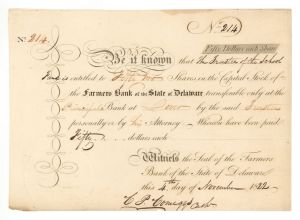 No. 214
No. 214.
Fifty Dollars each share
Be it known that The Trustees of the School
Fund is entitled to Fifty two Shares in the Capital Stock of
the Farmers Bank of the State of Delaware transferable only at the
Principal Bank at Dover by the said Trustees
personally or by his Attorney — Whereon have been paid
Fifty dollars each
Witness the Seal of the Farmers
Bank of the State of Delaware
this 4th day of November 18
C P Comegys